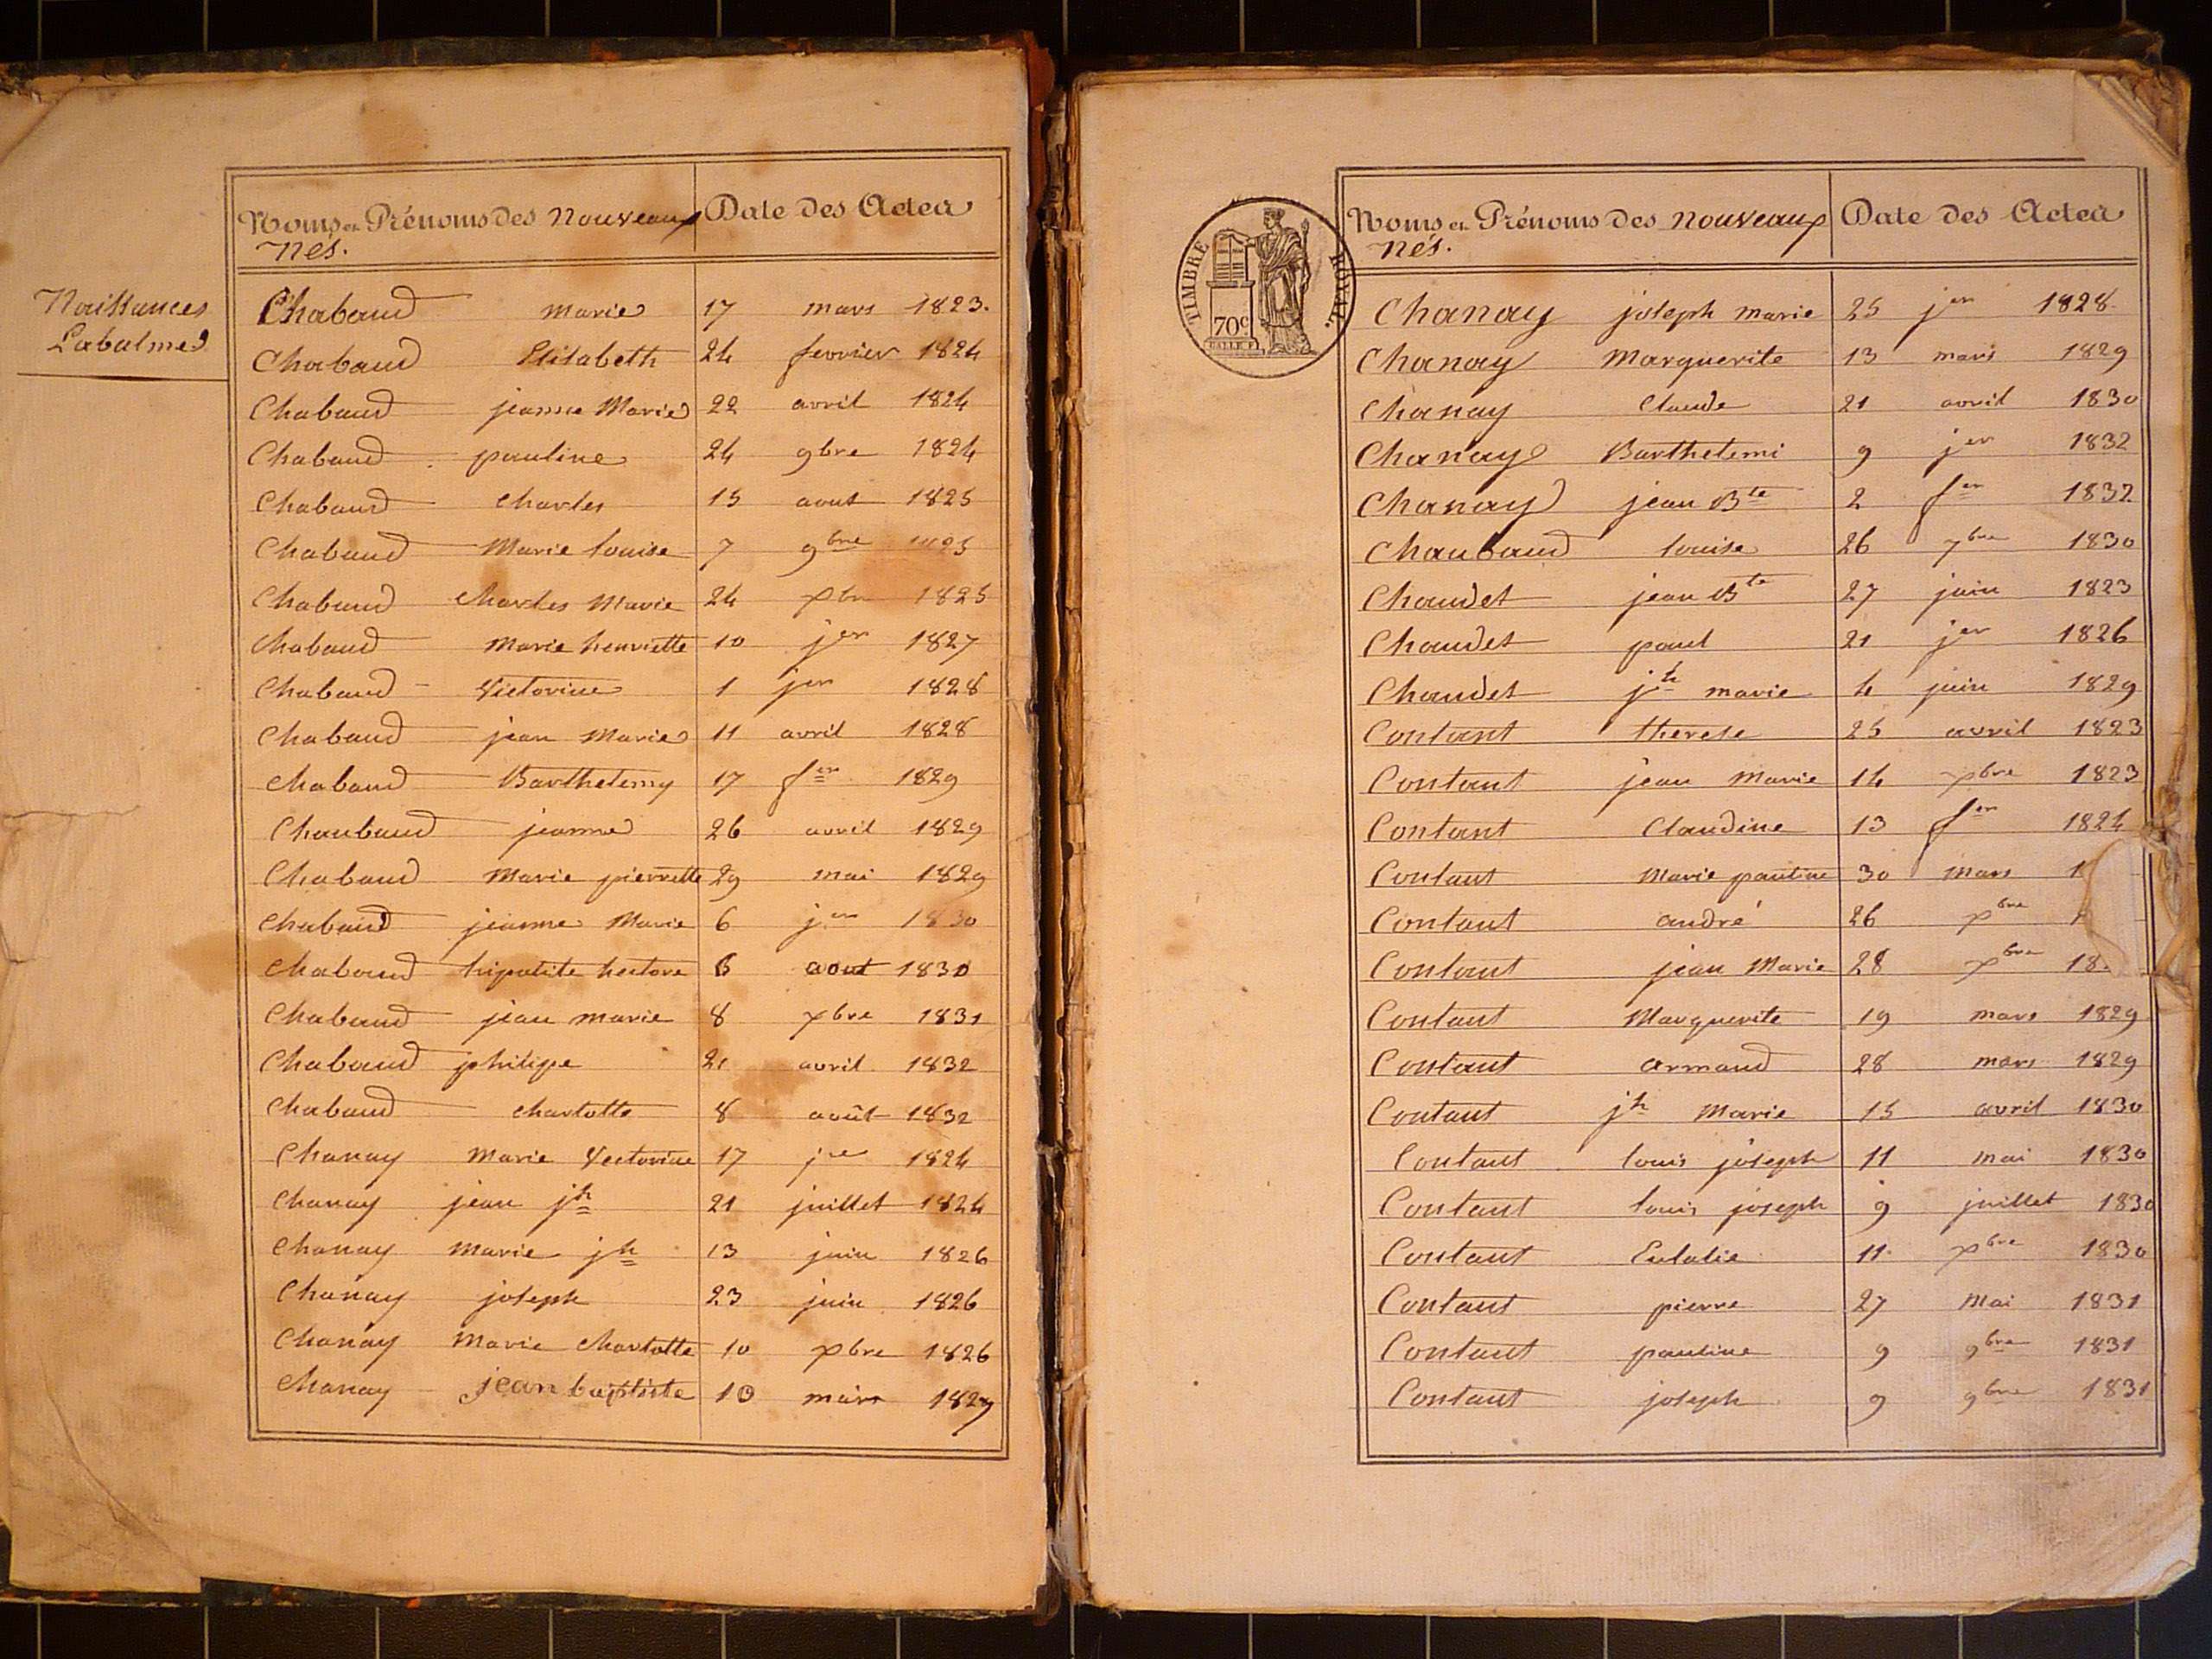 Naissances
Labalme
Noms et Prénoms des nouveaux Date des Actes
nés.
Chabaud marie 17 mars 1823.
Chabaud Elisabeth 24 fevrier 1824
Chabaud jeanne Marie 22 avril 1824
Chabaud pauline 24 9bre 1824
Chabaud charles 15 aout 1825
Chabaud Marie louise 7 9bre 1825
Chabaud charles Marie 24 xbre 1825
Chabaud Marie henriette 10 jer 1827
Chabaud Victorine 1 jer 1828
Chabaud jean Marie 11 avril 1828
Chabaud Barthelemy 17 fer 1829
Chaubaud jeanne 26 avril 1829
Chabaud Marie pierrette 29 mai 1829
Chabaud jeanne Marie 6 jer 1830
Chabaud hipolite hectore aout 1830
Chabaud jean marie 8 xbre 1831
Chabaud philipe 21 avril 1832
Chabaud charlotte 8 août 1832
Chanay Marie Vectorine 17 jer 1824
Chanay jean jh 21 juillet 1824
Chanay Marie jh 13 juin 1826
Chanay joseph 23 juin 1826
Chanay Marie charlotte 10 xbre 1826
Chanay jean baptiste 10 mars 1827
TIMBRE ROYAL.
70c
Noms et Prénoms des nouveaux Date des Actes
nés.
Chanay joseph marie 25 jer 1828
Chanay Marguerite 13 mars 1829
Chanay Claude 21 avril 1830
Chanay Barthelemi 9 jer 1832
Chanay jean Bte 2 fer 1832
Chaubaud louise 26 7bre 1830
Chaudet jean Bte 27 juin 1823
Chaudet paul 21 jer 1826
Chaudet jh marie 4 juin 1829
Contant therese 25 avril 1823
Contant jean Marie 14 xbre 1823
Contant Claudine 13 fer 1824
Contant Marie pauline 30 mars 1
Contant andré 26 xbre 1
Contant jean Marie 28 xbre 18
Contant Marguerite 19 mars 1829
Contant armand 28 mars 1829
Contant jh Marie 15 avril 1830
Contant louis joseph 11 mai 1830
Contant louis joseph 9 juillet 1830
Contant Eulalie 11 xbre 1830
Contant pierre 27 Mai 1831
Contant pauline 9 9bre 1831
Contant joseph 9 9bre 1831